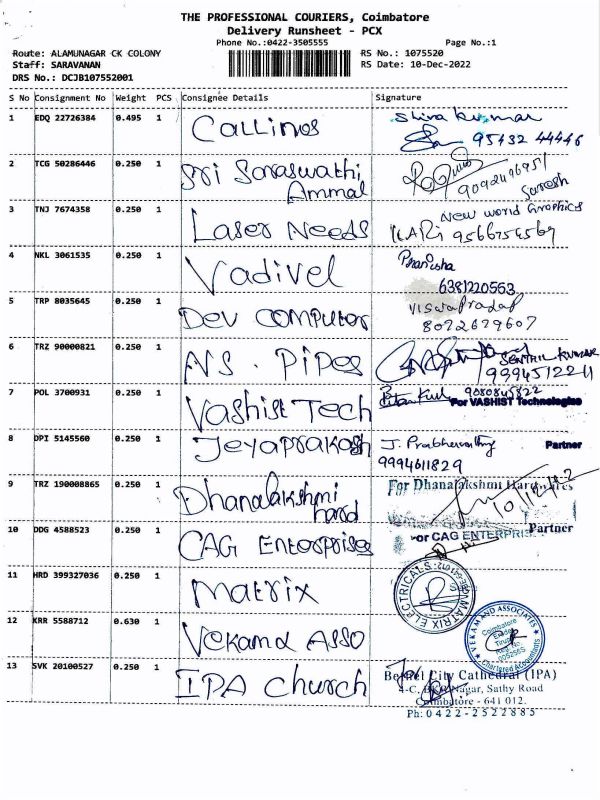 THE PROFESSIONAL COURIERS, Coimbatore
Delivery Runsheet - PCX
Phone No.:0422-3505555
Page No.:1
Route: ALAMUNAGAR CK COLONY
RS No.: 1075520
Staff: SARAVANAN
RS Date: 10-Dec-2022
DRS No.: DCJB107552001
S No Consignment No Weight PCS Consignee Details Signature
1 EDQ 22726384 0.495 1 Callinos Shiva kumar
95432 44446
2 TCG 50286446 0.250 1 Sri Saraswathi
Ammal
Suresh
3 TNJ 7674358 0.250 1 Laser Needs New world Graphics
HARI 9566754569
4 NKL 3061535 0.250 1 Vadivel
6381220563
5 TRP 8035645 0.250 1 Dev Computer Viswapratap
8072679607
6 TRZ 90000821 0.250 1 N.S. Pipes SENTHIL KUMAR
9994512211
7 POL 3700931 0.250 1 Vashist Tech 9080845822
For VASHIST Technologies
8 DPI 5145560 0.250 1 Jeyaprakash Partner
9994611829
9 TRZ 190008865 0.250 1 Dhanalakshmi
hard
For Dhanalakshmi Hardwares
Partner
10 DDG 4588523 0.250 1 CAG Enterprises For CAG ENTERPRISE
11 HRD 399327036 0.250 1 Matrix MATRIX ELECTRICALS
12 KRR 5588712 0.630 1 Vekamd Asso VEKAM AND ASSOCIATES
Coimbatore
Chartered Accountants
13 SVK 20100527 0.250 1 IPA Church Bethel City Cathedral (IPA)
Nagar, Sathy Road
Coimbatore - 641 012.
Ph: 0422-2522885